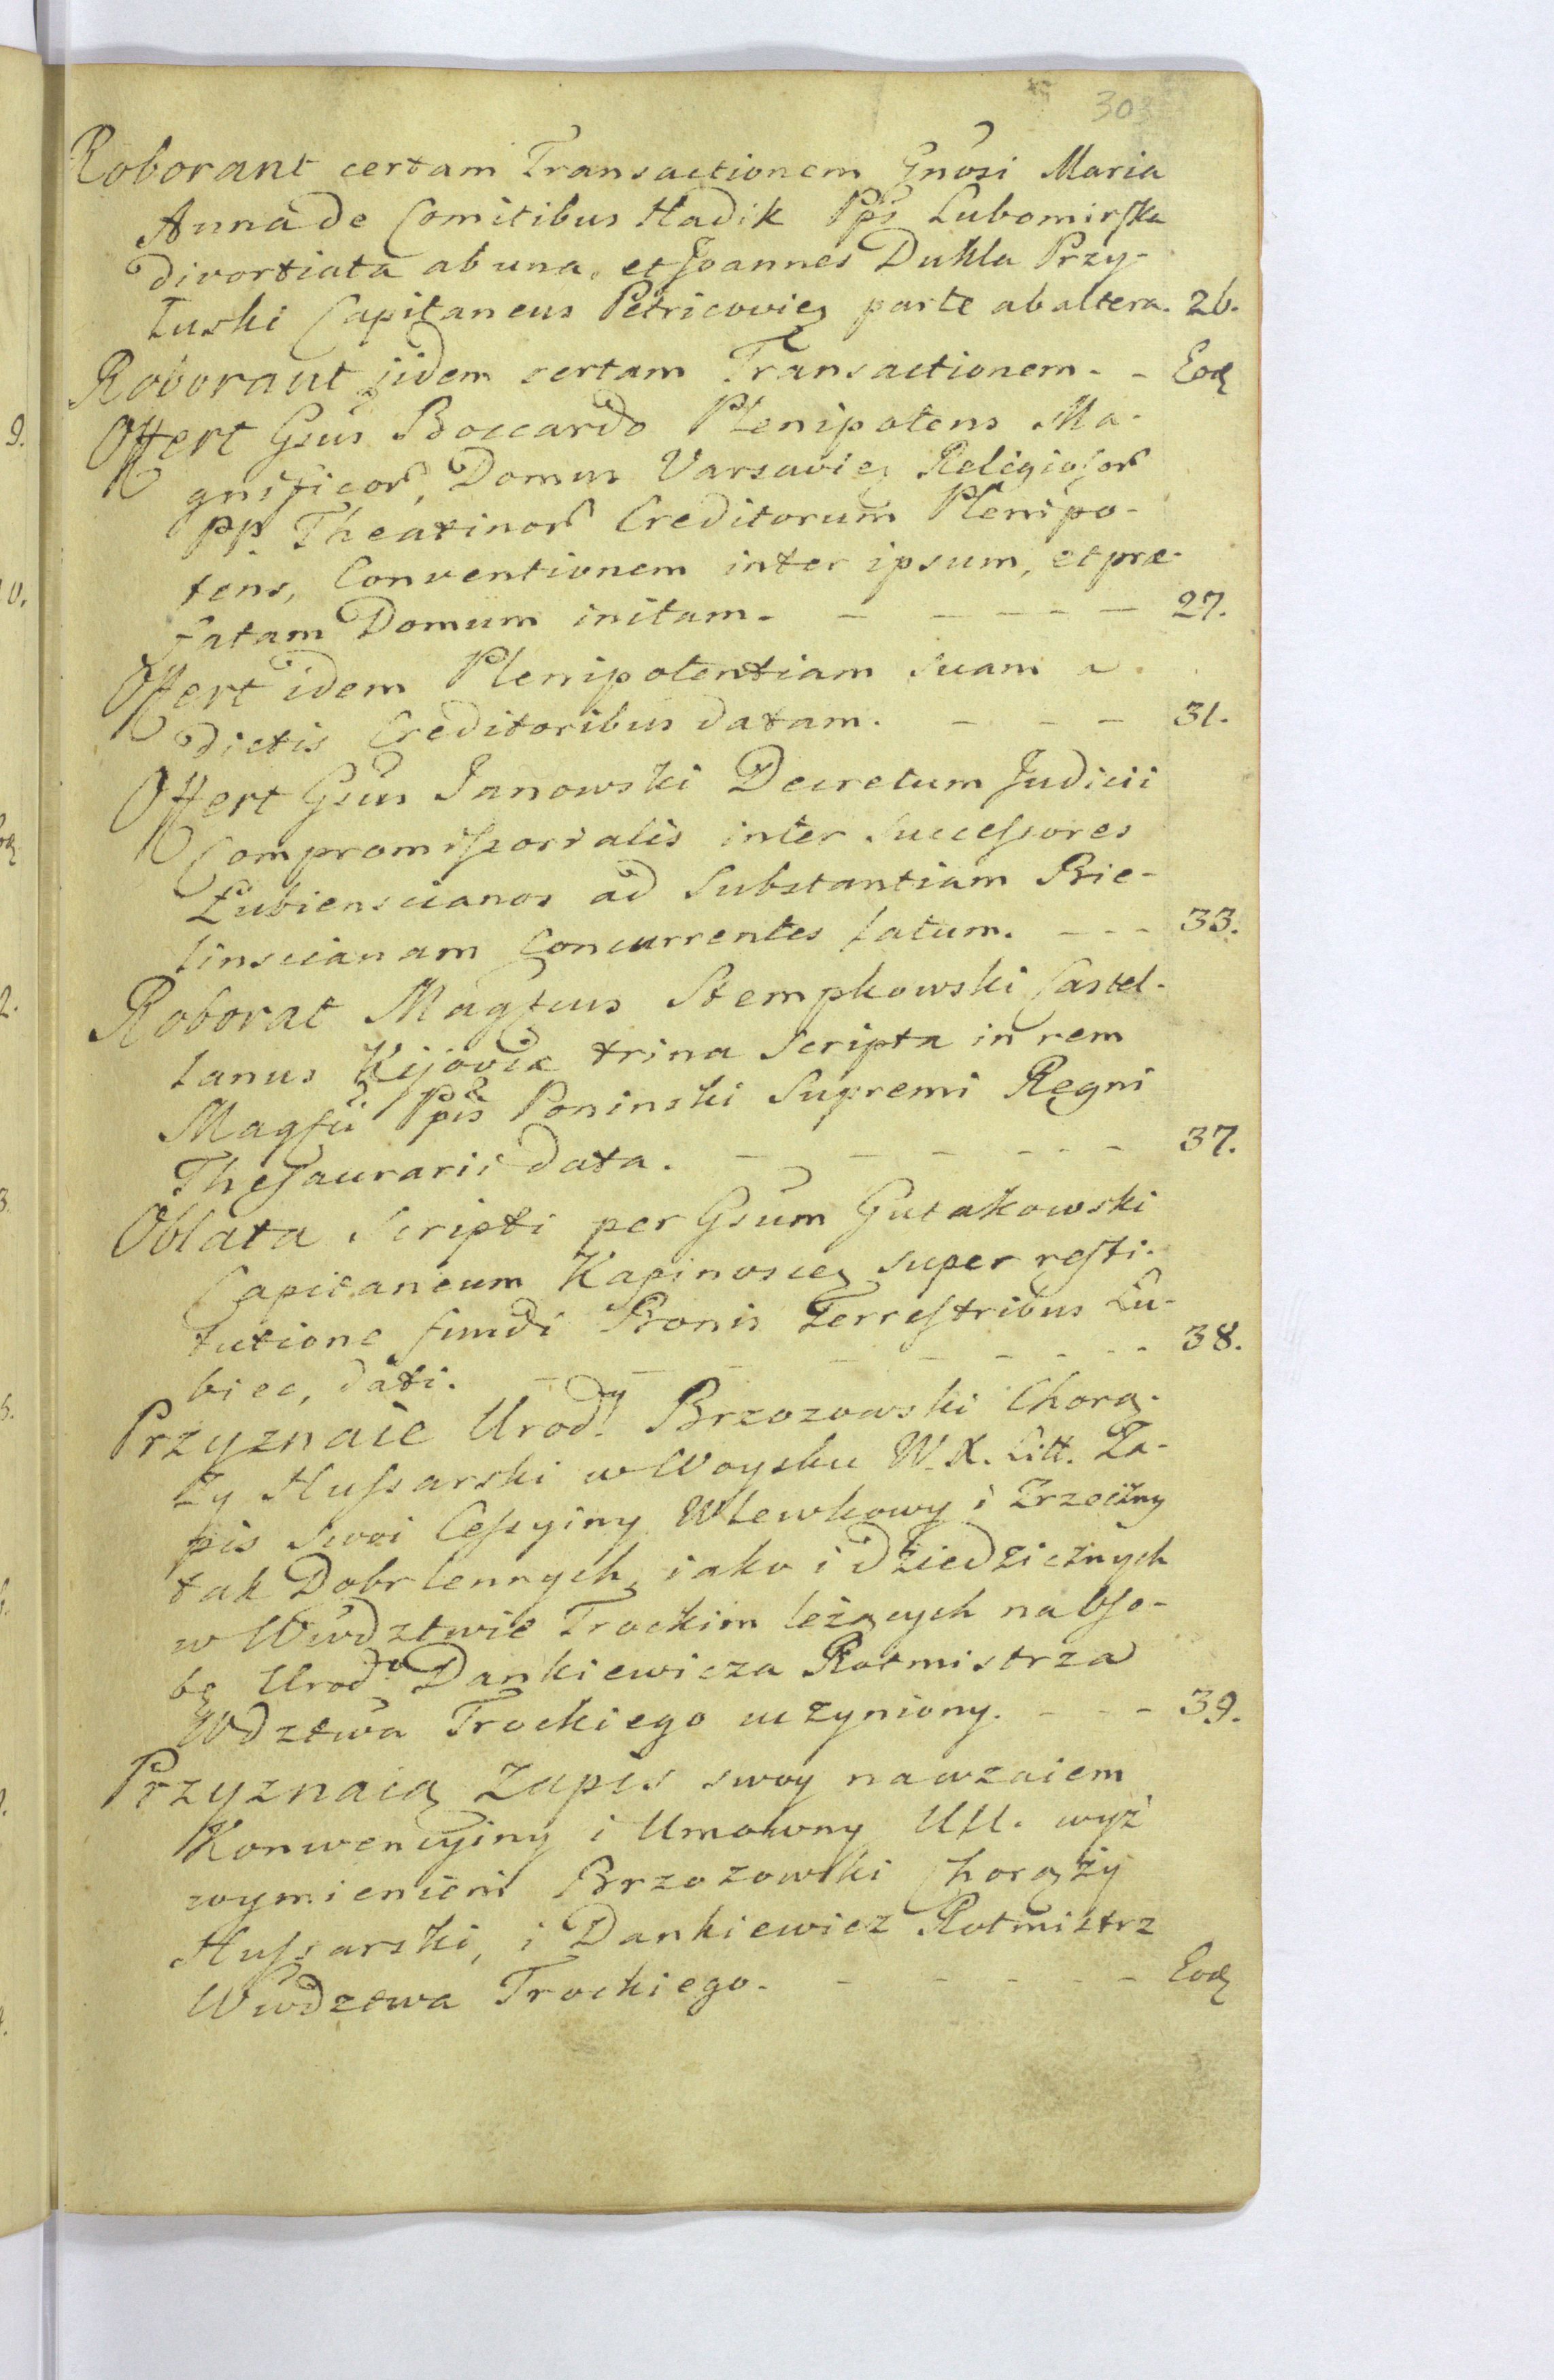 303
Roborant certam Transactionem Gnosi Maria
Anna de Comitibus Hadik Pps Lubomirska
divortiata ab una, et Joannes Dukla Przy-
łuski Capitaneus Petricovien parte ab altera. 26.
Roborant iidem certam Transactionem. - Eod
Offert Gsus Boccardo Plenipotens Ma-
gnificor, Domus Varsavien Religiosor
PP. Theatinor Creditorum Plenipo-
tens, Conventionem inter ipsum, et præ-
fatam Domum initam. - - - - - - 27.
Offert idem Plenipotentiam suam a
dictis Creditoribus datam. - - - 31.
Offert Gsus Janowski Decretum Judicii
Compromissorialis inter Successores
Łubienscianos ad Substantiam Bie-
linscianam Concurrentes latum. - - - 33.
Roborat Magfcus Stempkowski Castel-
lanus Kijoviæ trina Scripta in rem
Magfci Ppis Poninski Supremi Regni
Thesaurarii data. - - - - - - 37.
Oblata Scripti per Gsum Gutakowski
Capitaneum Kapinoscen super resti-
tutione fundi Bonis Terrestribus Lu-
biec, dati. - - - - - - - - 38.
Przyznaie Urod. Brzozowski Chorą-
ży Hussarski w Woysku W. X. Litt. Za-
pis Swoi Cessyiny Wlewkowy i Zrzeczny
tak Dobr lennych, iako i dziedzicznych
w Wwdztwie Trockim leżących na Oso-
bę Urod. Dankiewicza Rotmistrza
Wdztwa Trockiego uczyniony. - - - 39.
Przyznaią Zapis swoy nawzaiem
Konwencyiny i Umowny UU. wyż
wymienieni Brzozowski Chorąży
Hussarski, i Dankiewicz Rotmistrz
Wwdztwa Trockiego. - - - - - - Eod